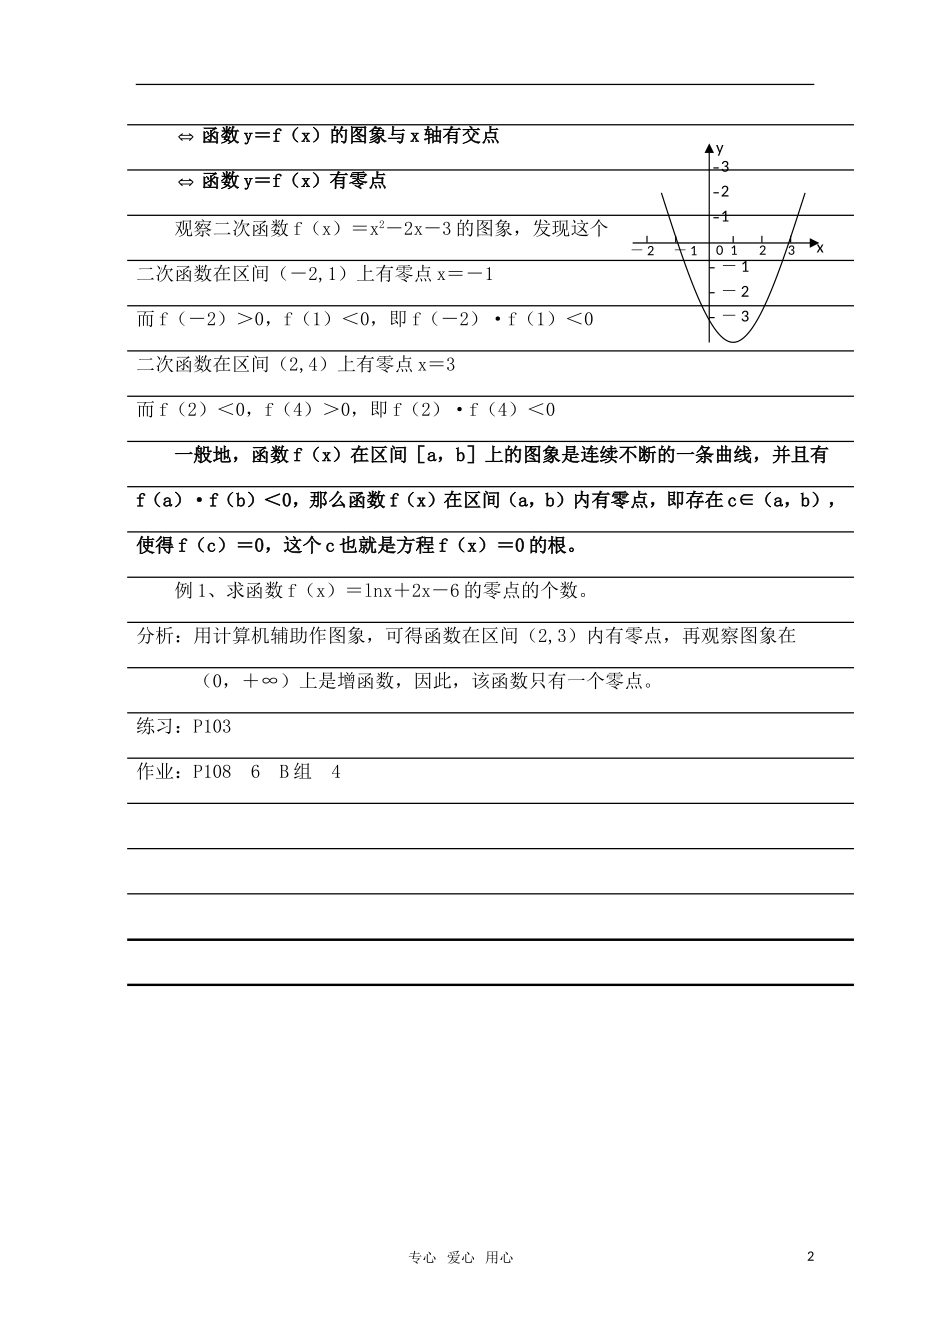 ⇔ 函数 y＝f（x）的图象与 x 轴有交点
⇔ 函数 y＝f（x）有零点
观察二次函数 f（x）＝x²－2x－3 的图象，发现这个
二次函数在区间（－2,1）上有零点 x＝－1
而 f（－2）＞0，f（1）＜0，即 f（－2）·f（1）＜0
二次函数在区间（2,4）上有零点 x＝3
而 f（2）＜0，f（4）＞0，即 f（2）·f（4）＜0
y
3
2
1
－2 －1 0 1 2 3 x
－1
－2
－3
一般地，函数 f（x）在区间［a，b］上的图象是连续不断的一条曲线，并且有
f（a）·f（b）＜0，那么函数 f（x）在区间（a，b）内有零点，即存在 c∈（a，b），
使得 f（c）＝0，这个 c 也就是方程 f（x）＝0 的根。
例 1、求函数 f（x）＝lnx＋2x－6 的零点的个数。
分析：用计算机辅助作图象，可得函数在区间（2,3）内有零点，再观察图象在
（0，＋∞）上是增函数，因此，该函数只有一个零点。
练习：P103
作业：P108 6 B 组 4
专心 爱心 用心 2